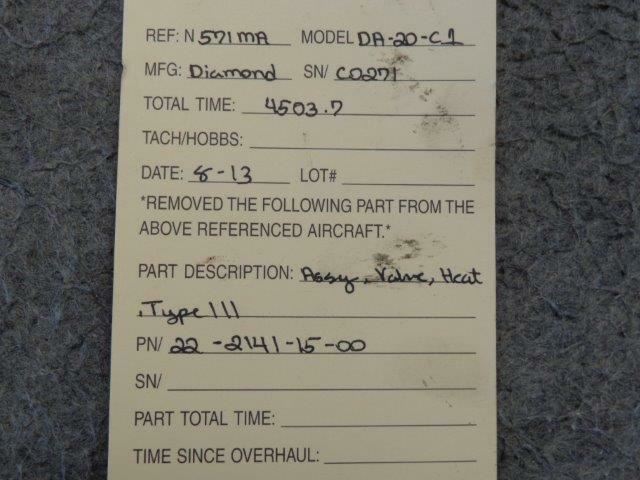 REF: N 571MA MODEL DA-20-C1
MFG: Diamond SN/ C0271
TOTAL TIME: 4503.7
TACH/HOBBS:
DATE: 8-13 LOT#
*REMOVED THE FOLLOWING PART FROM THE
ABOVE REFERENCED AIRCRAFT.*
PART DESCRIPTION: Assy, Valve, Heat
, Type III
PN/ 22-2141-15-00
SN/
PART TOTAL TIME:
TIME SINCE OVERHAUL: